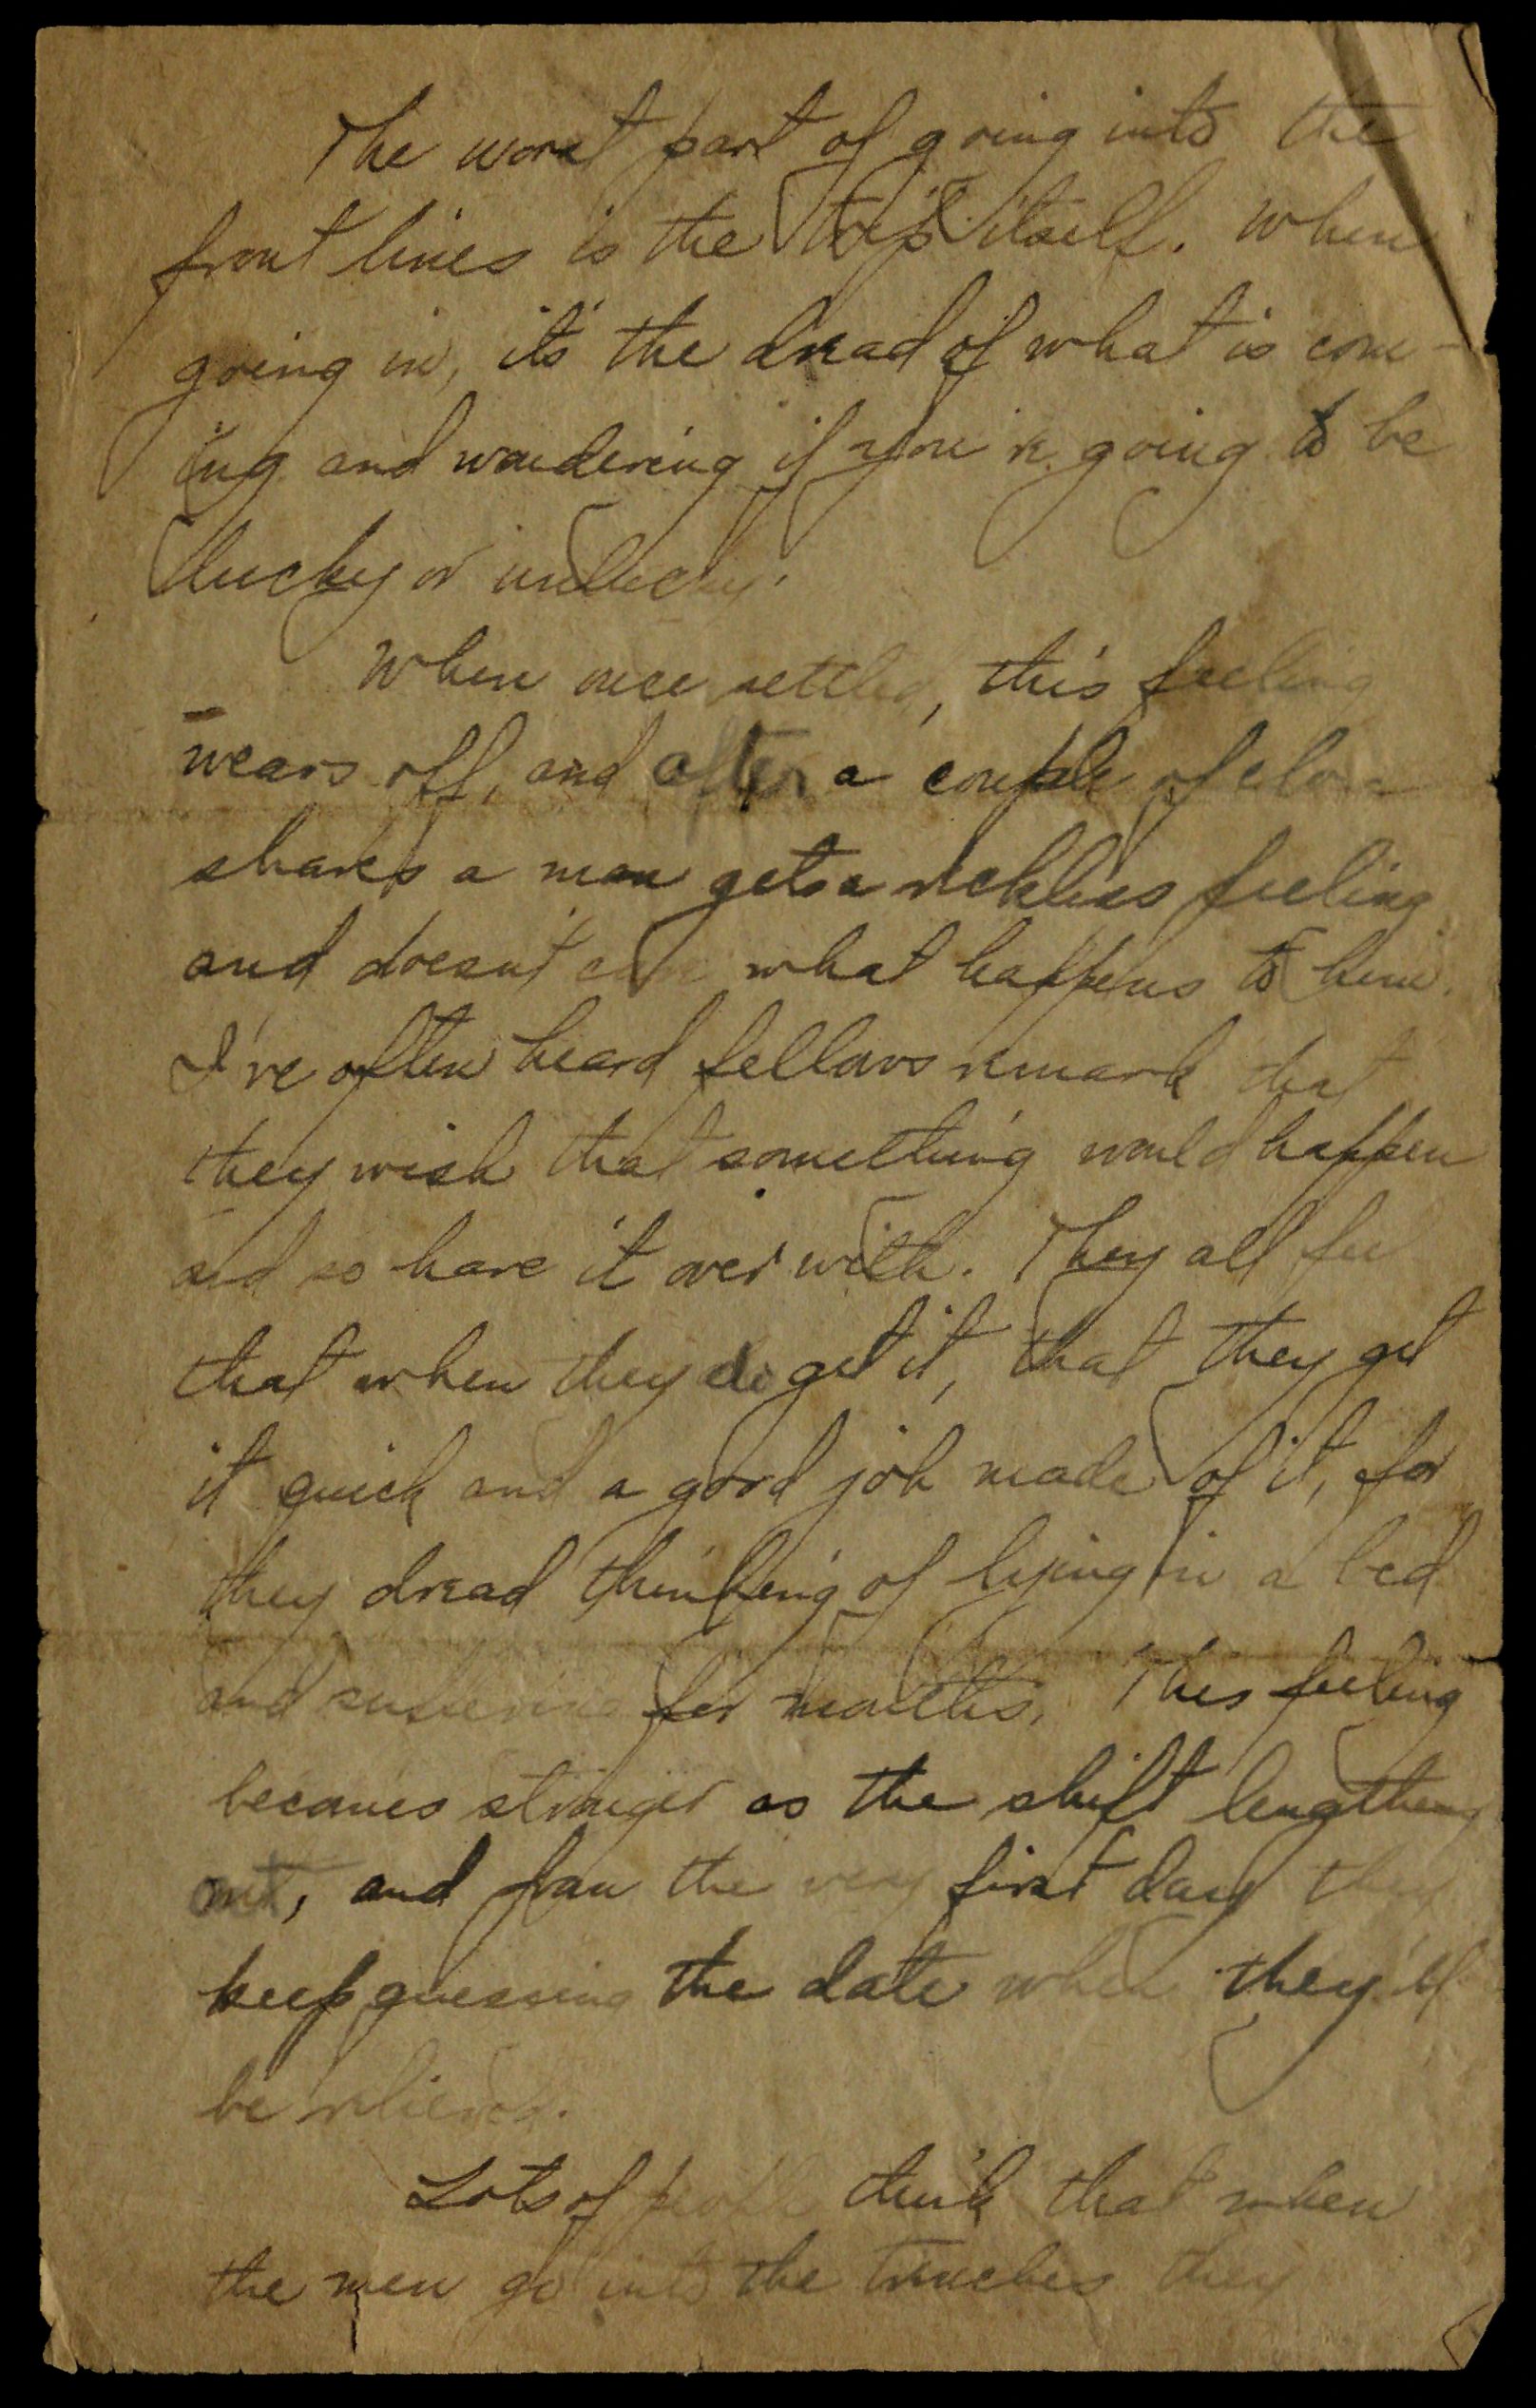 The worst part of going into the
front lines is the trip itself. When
going in, it's the dread of what is com-
ing and wondering if you're going to be
lucky or unlucky.
When once settled, this feeling
wears off, and after a couple of close
shaves a man gets a reckless feeling
and doesn't care what happens to him.
I've often heard fellows remark that
they wish that something would happen
and so have it over with. They all feel
that when they do get it, that they get
it quick and a good job made of it, for
they dread thinking of lying in a bed
and suffering for months. This feeling
becomes stronger as the shift lengthens
out, and from the very first day they
keep guessing the date when they'll
be relieved.
Lots of people think that when
the men go into the trenches they